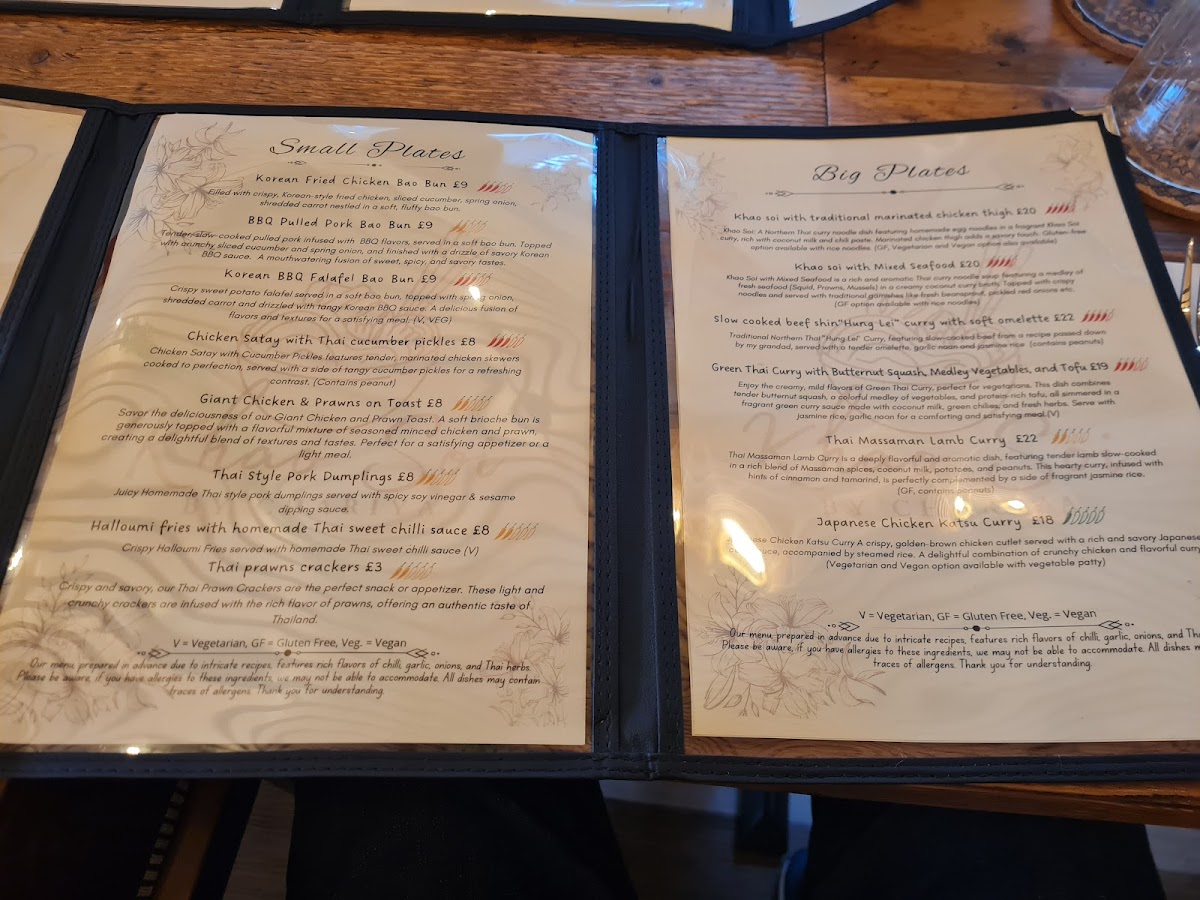 Small Plates
Korean Fried Chicken Bao Bun £9
Filled with crispy, Korean-style fried chicken, sliced cucumber, spring onion,
shredded carrot nestled in a soft, fluffy bao bun.
BBQ Pulled Pork Bao Bun £9
Tender, slow-cooked pulled pork infused with BBQ flavors, served in a soft bao bun. Topped
with crunchy sliced cucumber and spring onion, and finished with a drizzle of savory Korean
BBQ sauce. A mouthwatering fusion of sweet, spicy, and savory tastes.
Korean BBQ Falafel Bao Bun £9
Crispy sweet potato falafel served in a soft bao bun, topped with spring onion,
shredded carrot and drizzled with tangy Korean BBQ sauce. A delicious fusion of
flavors and textures for a satisfying meal. (V, VEG)
Chicken Satay with Thai cucumber pickles £8
Chicken Satay with Cucumber Pickles features tender, marinated chicken skewers
cooked to perfection, served with a side of tangy cucumber pickles for a refreshing
contrast. (Contains peanut)
Giant Chicken & Prawns on Toast £8
Savor the deliciousness of our Giant Chicken and Prawn Toast. A soft brioche bun is
generously topped with a flavorful mixture of seasoned minced chicken and prawn,
creating a delightful blend of textures and tastes. Perfect for a satisfying appetizer or a
light meal.
Thai Style Pork Dumplings £8
Juicy Homemade Thai style pork dumplings served with spicy soy vinegar & sesame
dipping sauce.
Halloumi fries with homemade Thai sweet chilli sauce £8
Crispy Halloumi Fries served with homemade Thai sweet chilli sauce (V)
Thai prawns crackers £3
Crispy and savory, our Thai Prawn Crackers are the perfect snack or appetizer. These light and
crunchy crackers are infused with the rich flavor of prawns, offering an authentic taste of
Thailand.
V = Vegetarian, GF = Gluten Free, Veg. = Vegan
Our menu, prepared in advance due to intricate recipes, features rich flavors of chilli, garlic, onions, and Thai herbs.
Please be aware, if you have allergies to these ingredients, we may not be able to accommodate. All dishes may contain
traces of allergens. Thank you for understanding.
Big Plates
Khao soi with traditional marinated chicken thigh £20
Khao Soi: A Northern Thai curry noodle dish featuring homemade egg noodles in a fragrant Khao Soi
curry, rich with coconut milk and chili paste. Marinated chicken thigh adds a savory touch. Gluten-free
option available with rice noodles. (GF, Vegetarian and Vegan option also available)
Khao soi with Mixed Seafood £20
Khao Soi with Mixed Seafood is a rich and aromatic Thai curry noodle soup featuring a medley of
fresh seafood (Squid, Prawns, Mussels) in a creamy coconut curry broth. Topped with crispy
noodles and served with traditional garnishes like fresh beansprout, pickled red onions etc.
(GF option available with rice noodles)
Slow cooked beef shin"Hung Lei" curry with soft omelette £22
Traditional Northern Thai "Hung Lei" Curry, featuring slow-cooked beef from a recipe passed down
by my grandad, served with a tender omelette, garlic naan and jasmine rice (contains peanuts)
Green Thai Curry with Butternut Squash, Medley Vegetables, and Tofu £19
Enjoy the creamy, mild flavors of Green Thai Curry, perfect for vegetarians. This dish combines
tender butternut squash, a colorful medley of vegetables, and protein-rich tofu, all simmered in a
fragrant green curry sauce made with coconut milk, green chilies, and fresh herbs. Serve with
jasmine rice, garlic naan for a comforting and satisfying meal.(V)
Thai Massaman Lamb Curry £22
Thai Massaman Lamb Curry is a deeply flavorful and aromatic dish, featuring tender lamb slow-cooked
in a rich blend of Massaman spices, coconut milk, potatoes, and peanuts. This hearty curry, infused with
hints of cinnamon and tamarind, is perfectly complemented by a side of fragrant jasmine rice.
(GF, contains peanuts)
Japanese Chicken Katsu Curry £18
Japanese Chicken Katsu Curry A crispy, golden-brown chicken cutlet served with a rich and savory Japanese
sauce, accompanied by steamed rice. A delightful combination of crunchy chicken and flavorful curry
(Vegetarian and Vegan option available with vegetable patty)
V = Vegetarian, GF = Gluten Free, Veg. = Vegan
Our menu, prepared in advance due to intricate recipes, features rich flavors of chilli, garlic, onions, and
Please be aware, if you have allergies to these ingredients, we may not be able to accommodate. All dishes
traces of allergens. Thank you for understanding.